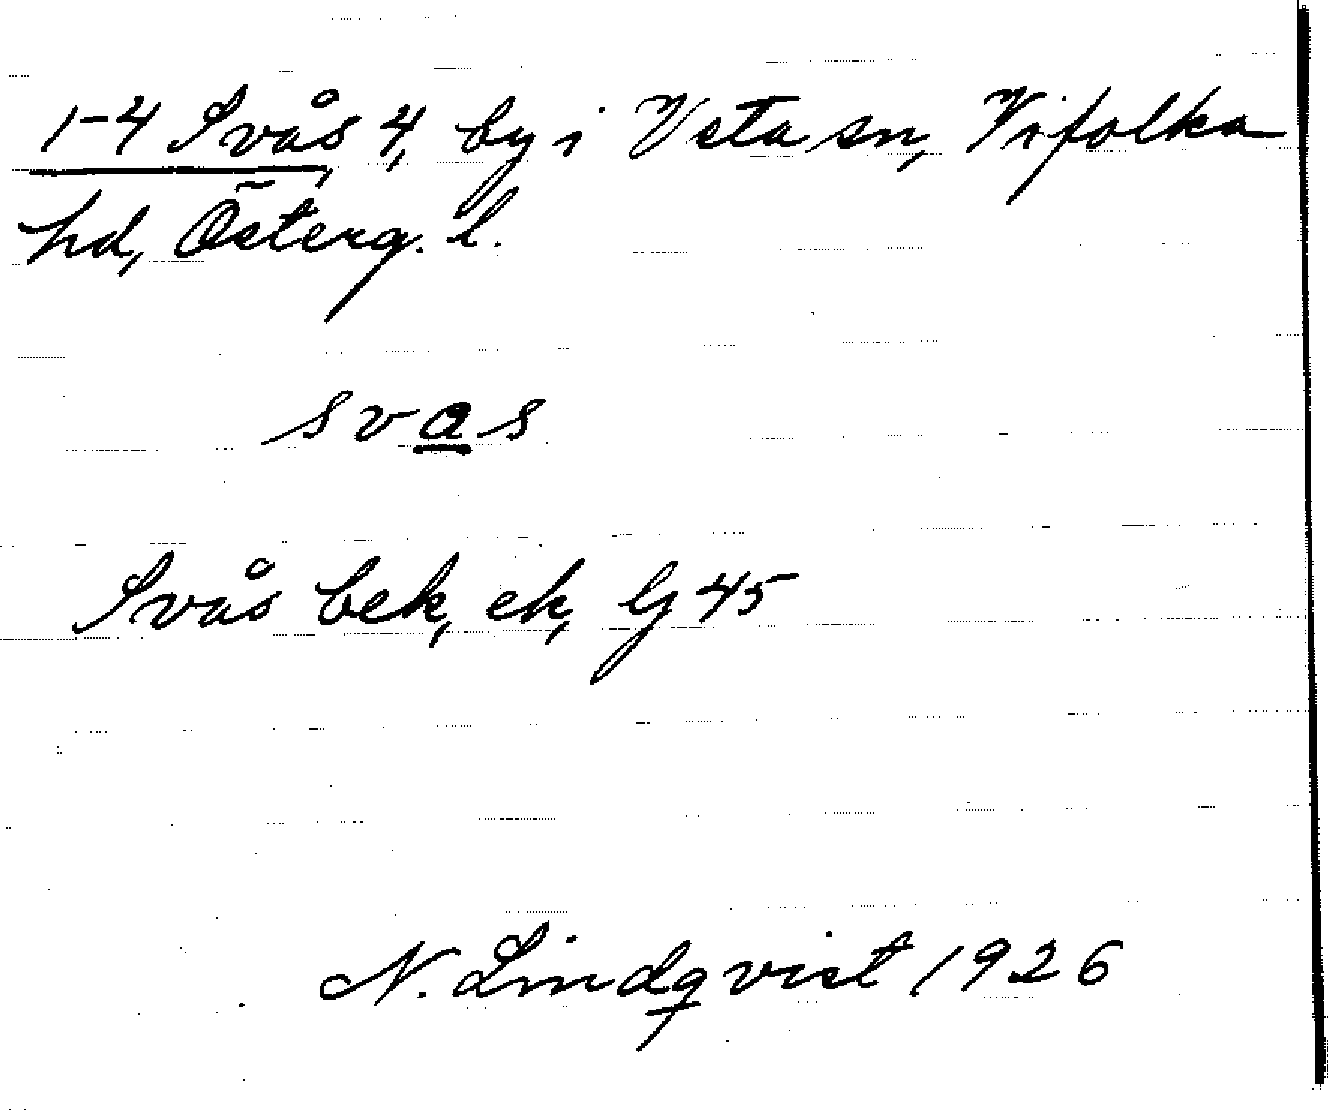 1-4 Svås 4, by i Veta sn, Vifolka
hd, Österg. l.
svas
Svås bek, ek, G 45
N. Lindqvist 1926